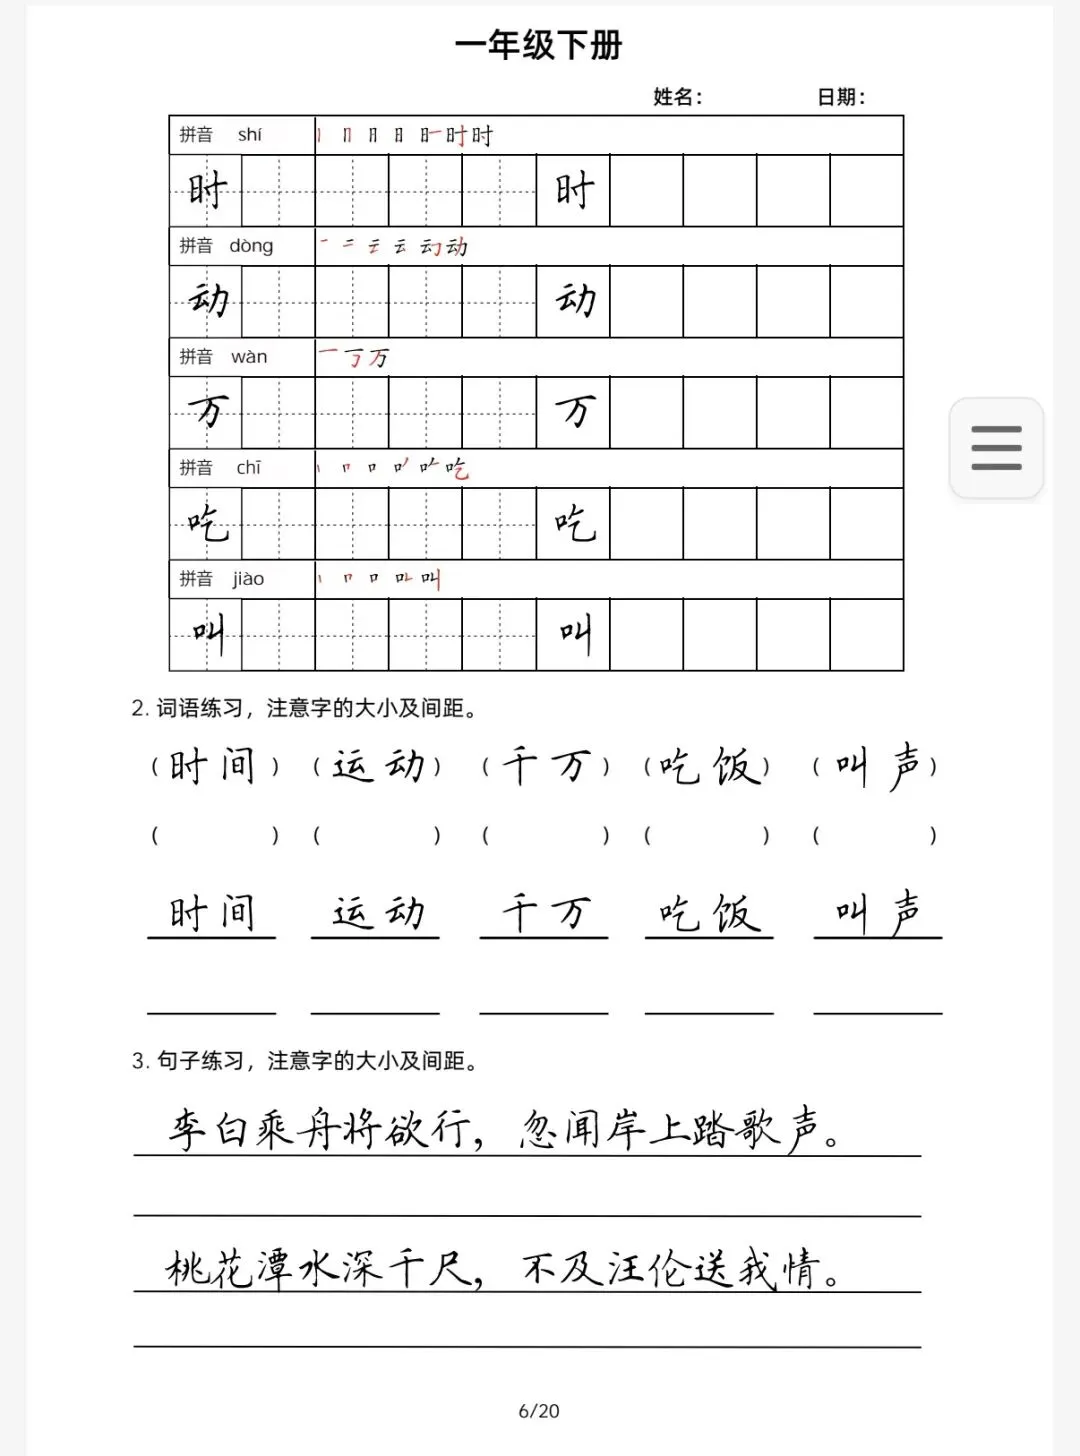 一年级下册
姓名： 日期：
拼音 shí 丨 冂 月 日 旪 时 时
时 时
拼音 dòng 一 二 テ 云 动 动
动 动
拼音 wàn 一 丁 万
万 万
拼音 chī 丨 冂 口 吃
吃 吃
拼音 jiào 丨 冂 口 叫
叫 叫
2. 词语练习，注意字的大小及间距。
（时间）（运动）（千万）（吃饭）（叫声）
（ ）（ ）（ ）（ ）（ ）
时间 运动 千万 吃饭 叫声
3. 句子练习，注意字的大小及间距。
李白乘舟将欲行，忽闻岸上踏歌声。
桃花潭水深千尺，不及汪伦送我情。
6/20